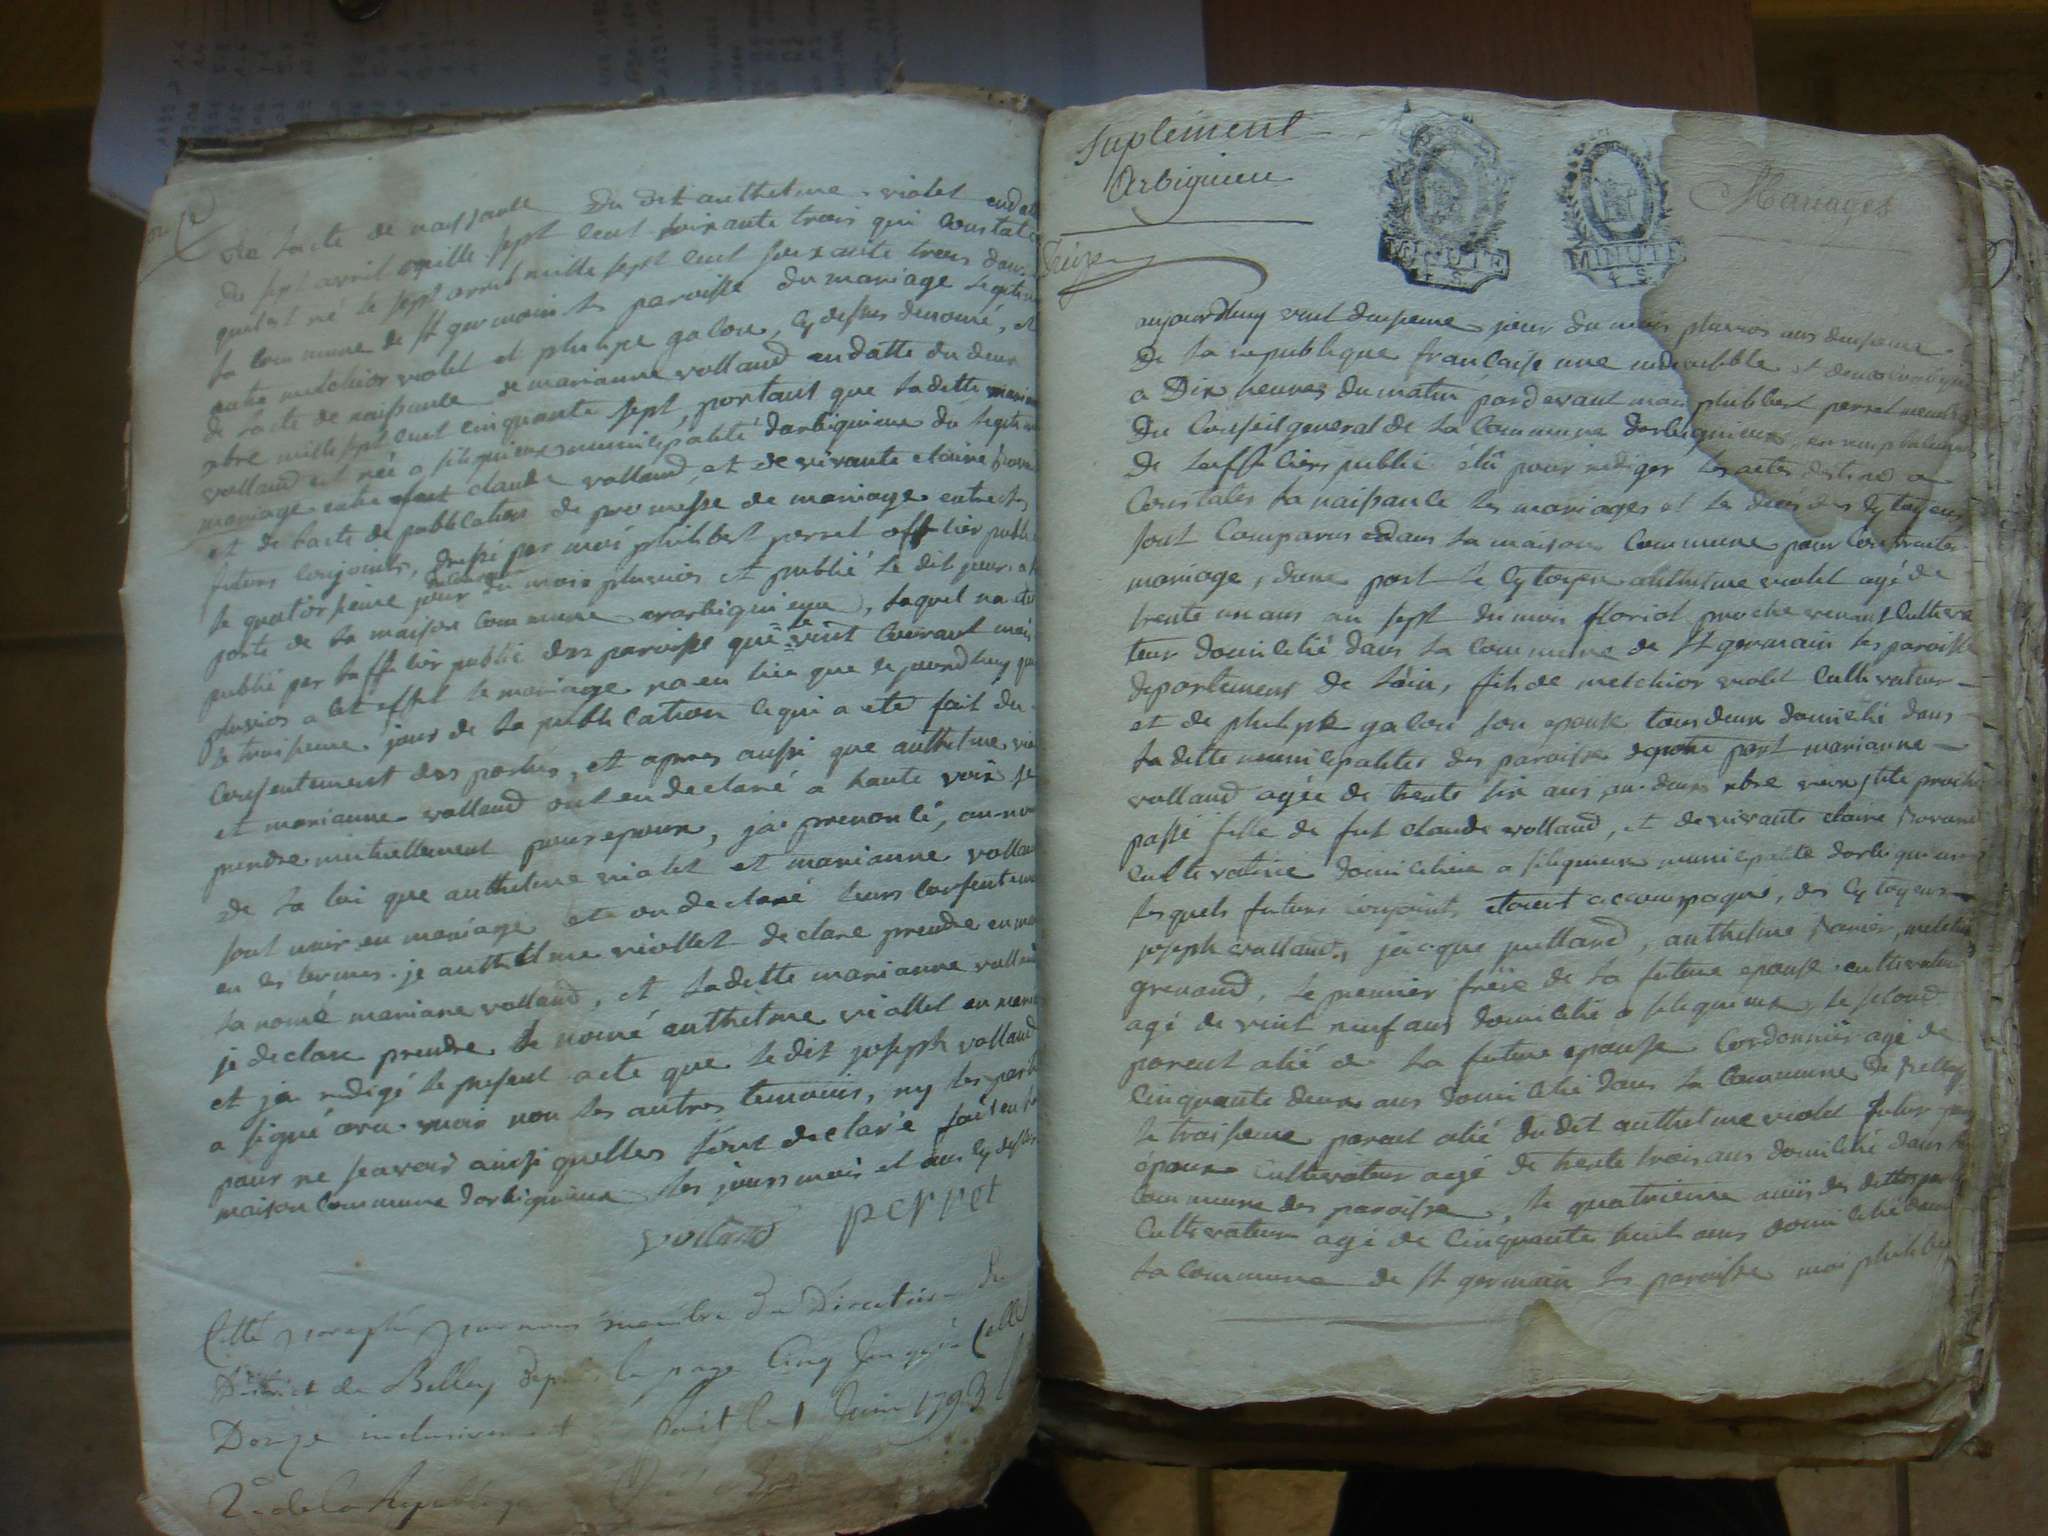 de lacte de naissance du dit anthelme violet en datte
du sept avril mille sept cent soixante trois qui constate
quil est né le sept avril mille sept cent soixante trois dans
la commune de st germain les paroisse du mariage legitime
entre melchior violet et philipe galon, cy dessus denomé, et
de lacte de naissance de marianne volland en datte du deux
xbre mille sept cent cinquante sept, portant que la ditte marianne
volland est née a silignieux municipalité darbignieux du legitime
mariage entre feut claude volland, et de vivante claire
et de lacte de publication de promesse de mariage entre les
futurs conjoints, dressé par moi philibert perret officier public
le quatorsieme jour du mois pluvios et publié le dit jour a la
porte de la maison commune darbignieux, laquel na eté
publié par lofficier public des paroisse que le vint courant mois
pluvios a cet effet le mariage na eu lieu que aujourdhuy
le troisieme jour de la publication ce qui a eté fait du
consentement des parties, et apres aussi que anthelme violet
et marianne volland ont eu declaré a haute voix se
prendre mutuellement pour epoux, jai prononcé, au nom
de la loi que anthelme violet et marianne volland
sont unis en mariage et on declaré leurs consentement
en ces termes. je anthelme viollet declare prendre en mariage
la nomé mariane volland, et ladditte marianne volland
je declare prendre le nomé anthelme viollet en mariage
et jai redigé le present acte que le dit joseph volland
a signé avec moi non les autres temoins, ny les parties
pour ne scavoir ainsi quelles lont declaré fait en la
maison commune darbignieux les jours mois et ans cy dessus
volland perret
Cotté paraphé par nous membre du Directoire du
District de Belley depuis la page Cinq jusqu'à Celle
Douze inclusivement fait le 1 Juin 1793 l
2e de la Republique
Suplement
Arbignieu
Mariages
Treize
MINUTE
4 S.
MINUTE
4 S.
aujourdhuy vint deuxieme jour du mois pluvios ans deuxieme
de la republique francaise une indivisible et democratique
a Dix heures du matin pardevant moi philibert perret membre
du Conseil general de la Commune darbignieux, en remplacement
de lofficiers public élû pour rediger les actes destiné a
Constater la naissance les mariages et les deces des cytoyens
sont Comparus dans la maison Commune pour Contracter
mariage, dune part le Cytoyen anthelme violet agé de
trente un ans au sept du mois floriol proche venant cultiva
teur domicilié dans la Commune de st germain les paroisse
departement de lain, fils de melchior violet Cultivateur
et de philipe galon son epouse tous deux domicilié dans
la ditte municipalités des paroisse dautre part marianne
volland agée de trente six ans au deux xbre vieux stile proche
passé fille de feut claude volland, et de vivante claire
cultivatrice domiciliée a silignieux municipalité darbignieux
lesquels futurs conjoints etoient accompagné, des Cytoyens
joseph volland, jacque juilland, anthelme, melchior
grenaud, le premier frère de la future epouse cultivateur
agé de vint neuf ans domicilié a silignieux, le second
parent alié de la future epouse Cordonnier agé de
Cinquante deux ans domicilié dans la Commune de Belley
le troisieme parent alié du dit anthelme violet futur
époux Cultivateur agé de trente trois ans domicilié dans la
Commune des paroisse, le quatrieme amis des dittes parties
Cultivateur agé de Cinquante huit ans domicilié dans
la commune de st germain les paroisse moi philibert